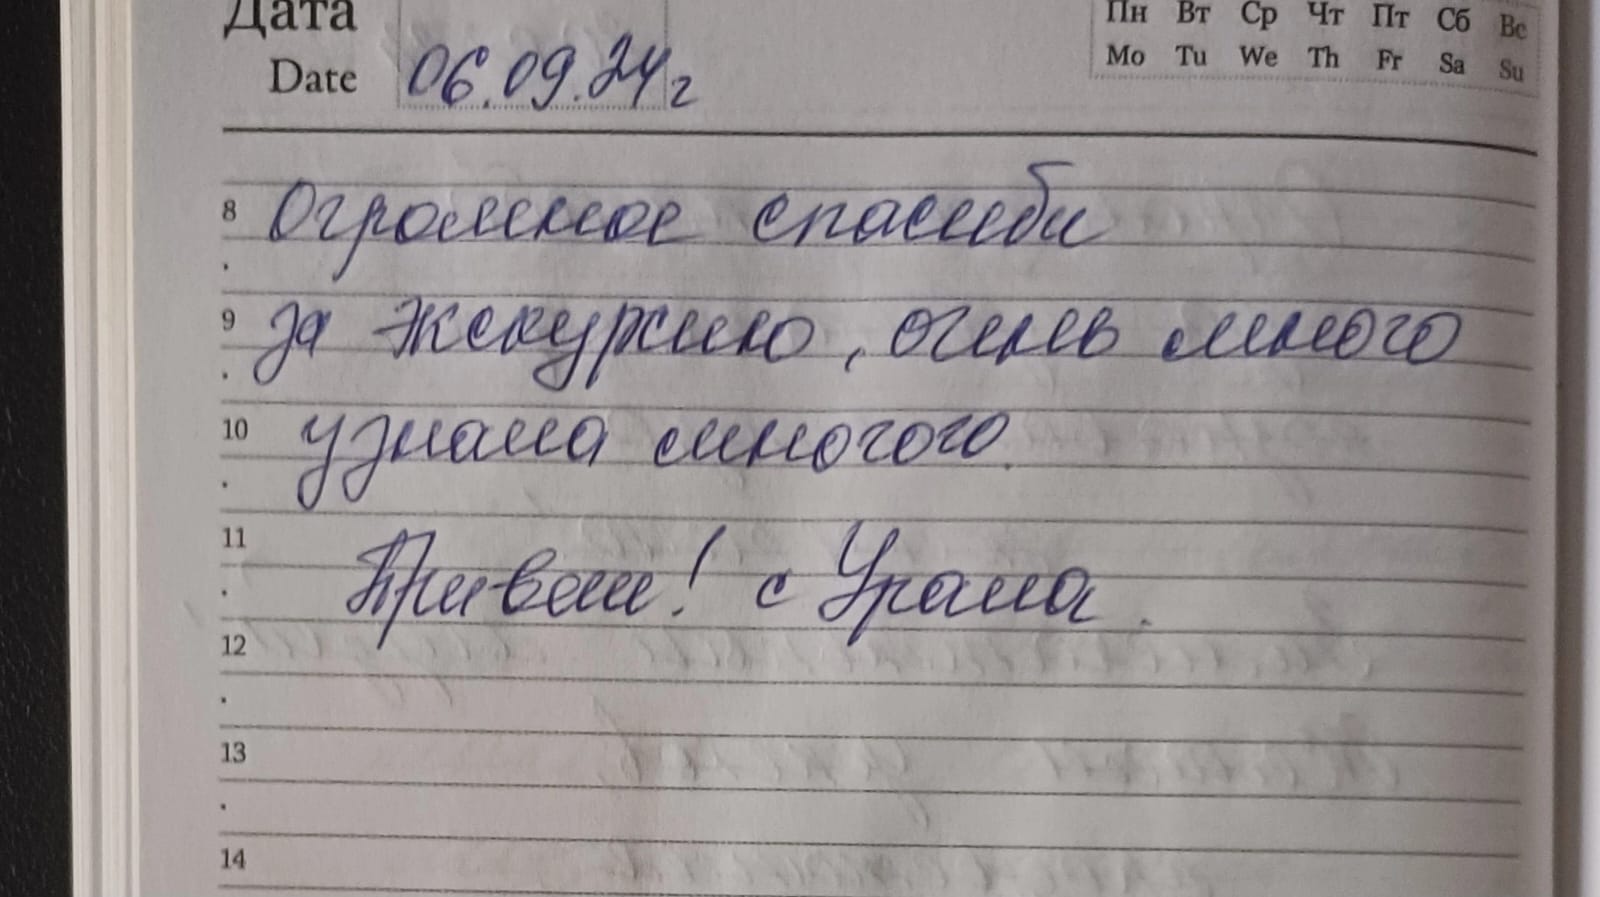 Дата Пн Вт Ср Чт Пт Сб Вс
Date 06.09.24г Mo Tu We Th Fr Sa Su
8 Огромное спасиби
9 за экскурсию, очень много
10 узнала многого.
11 Привет! с Урала.
12
13
14